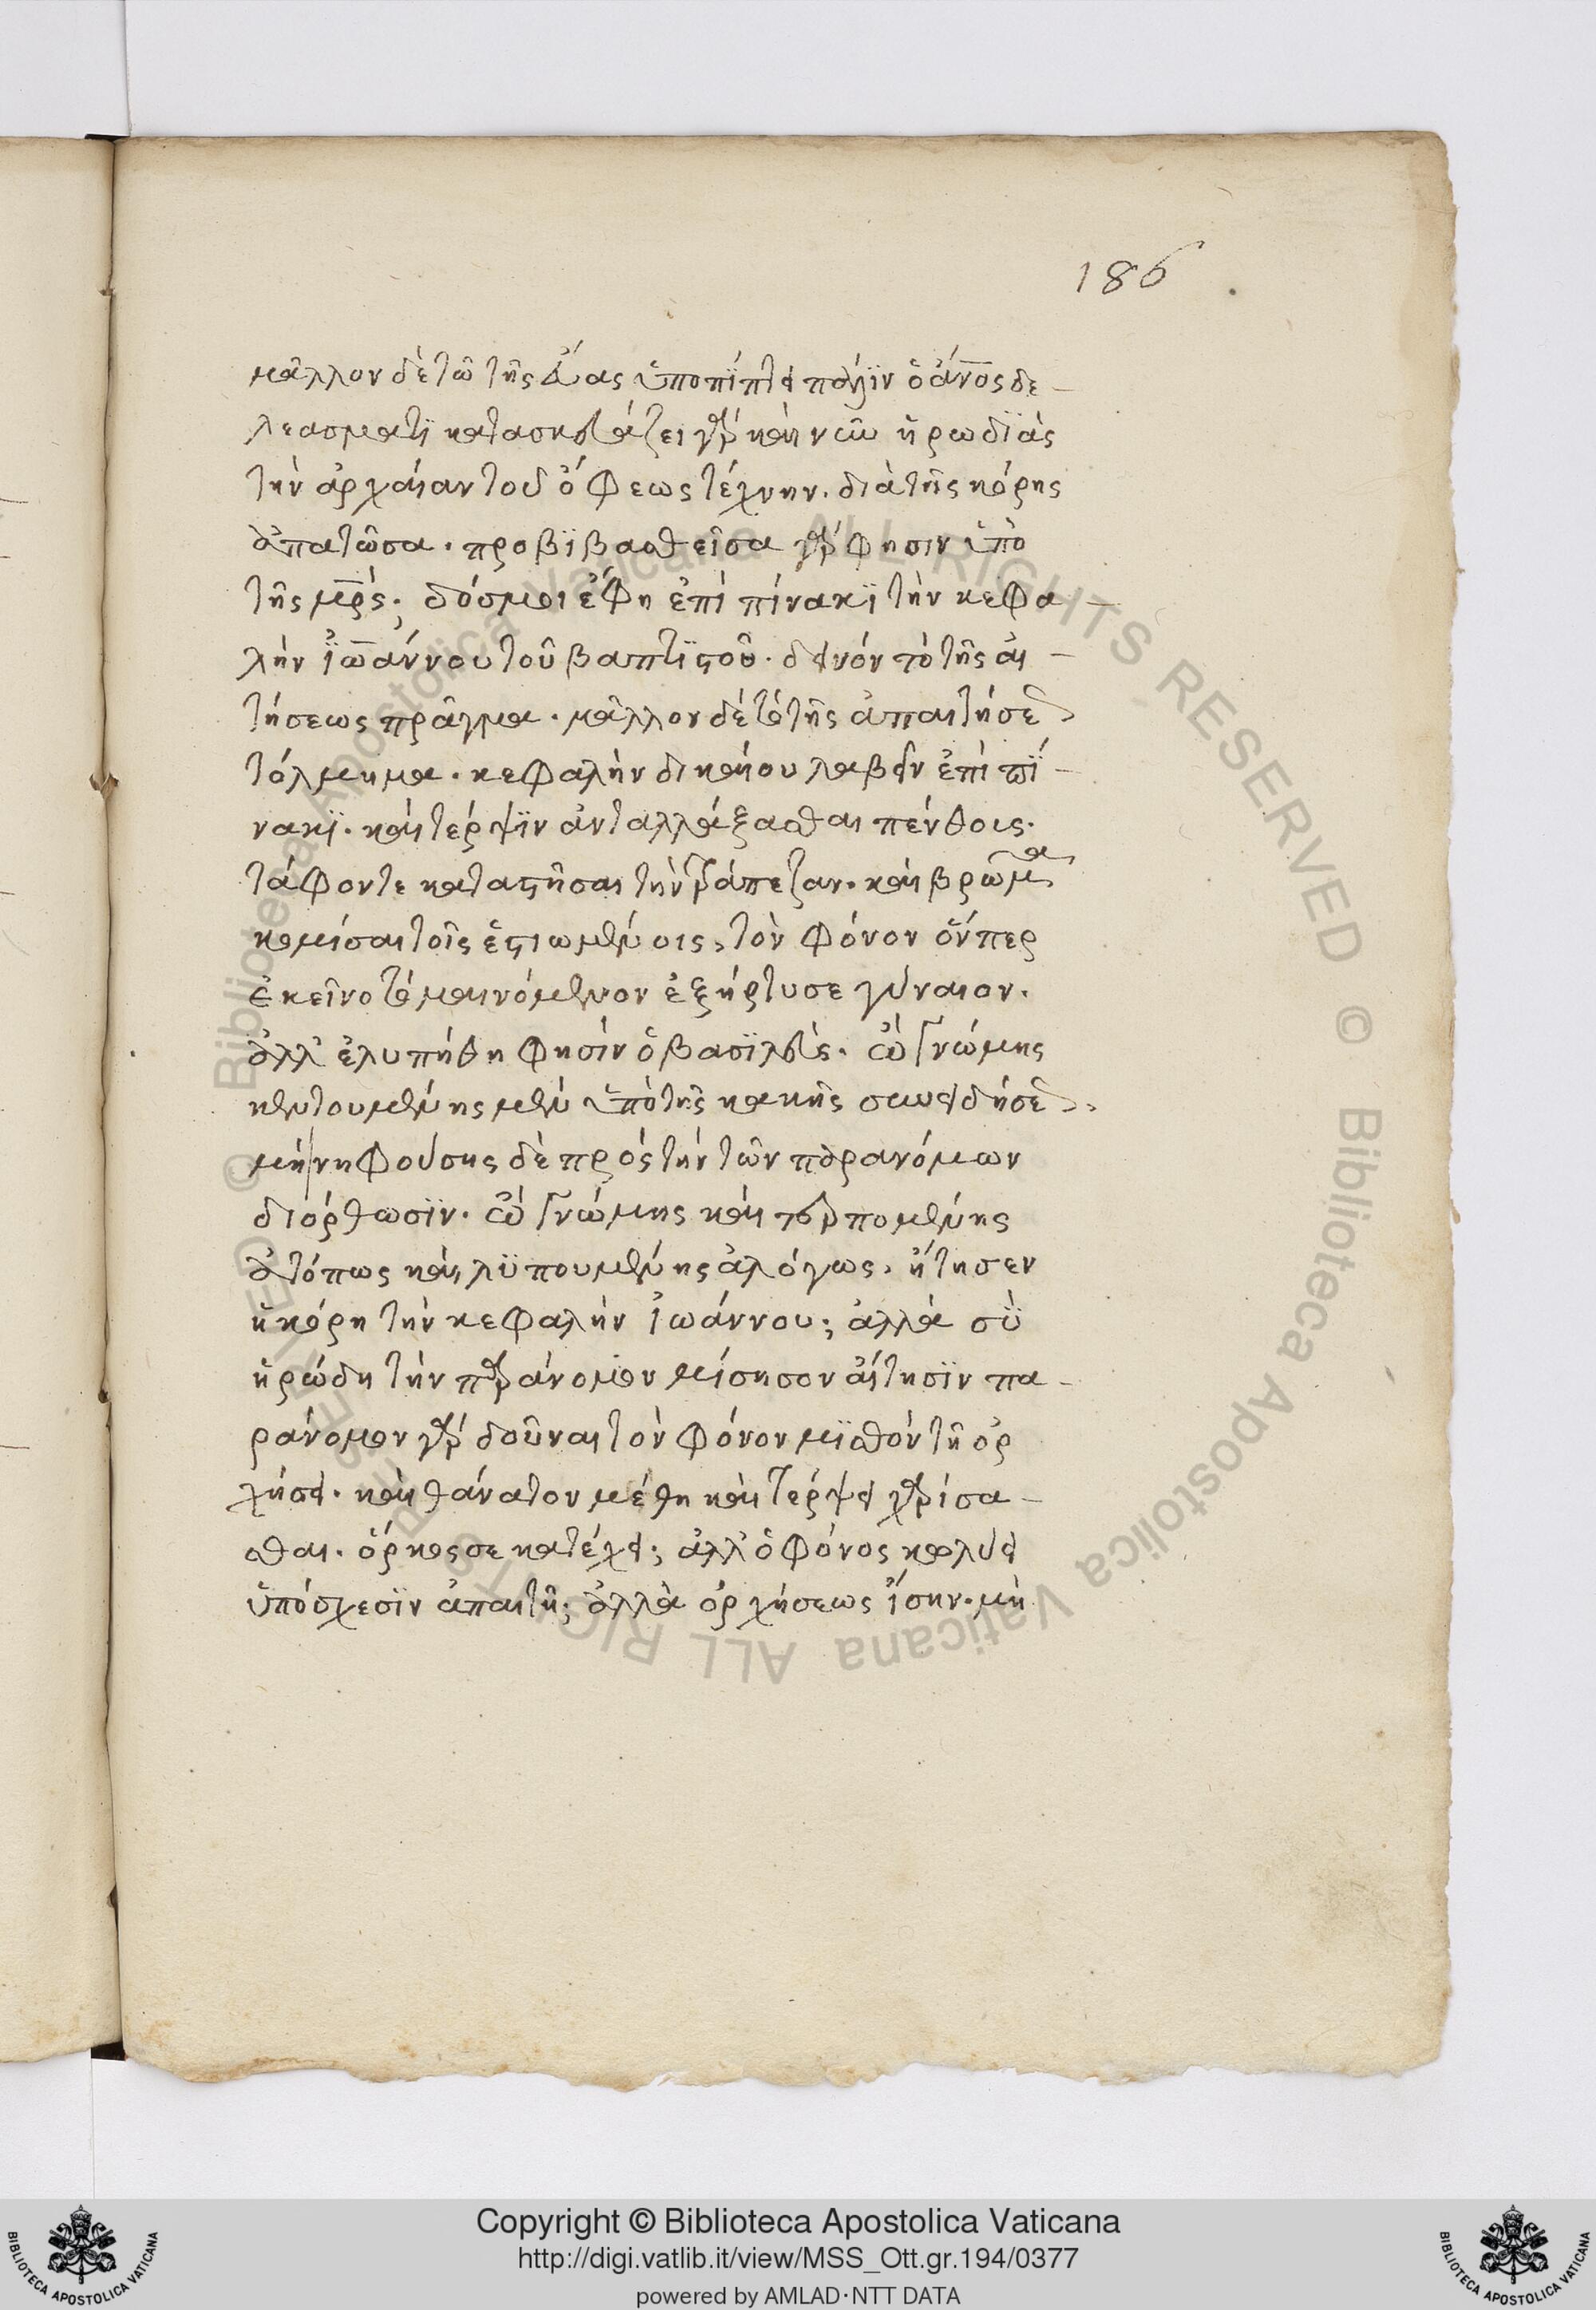 186
μᾶλλον δὲ τῶ τῆς εὔας ὑποπίπτει πάλϊν ὁ ἄνος δε-
λεασματϊ κατασκευάζει γὰρ καὶ νῦν ἡρωδϊὰς
τὴν ἀρχαίαν τοῦ ὄφεως τέχνην. διὰ τῆς κόρης
ἀπατῶσα. προβϊβασθεῖσα γάρ φησιν ὑπὸ
τῆς μρς. δόσμοι ἔφη ἐπὶ πίνακϊ τὴν κεφα-
λὴν ἰωάννου τοῦ βαπτϊστοῦ. δεινόν τὸ τῆς αἰ-
τήσεως πρᾶγμα. μᾶλλον δέ τὸ τῆς ἀπαιτήσε
τόλμημα. κεφαλὴν δικαίου λαβεῖν ἐπὶ πϊ-
νακϊ. καὶ τέρψϊν ἀνταλλάξασθαι πένθοις.
τάφον τε καταστῆσαι τὴν τράπεζαν. καὶ βρῶμα
κομίσαι τοῖς ἑστιωμένοις, τὸν φόνον ὅνπερ
ἐκεῖνο τὸ μαινόμενον ἐξήρτυσε γύναιον.
ἀλλ' ἐλυπήθη φησίν ὁ βασϊλεὺς. ὢ γνώμης
κεντουμένης μὲν ὑπὸ τῆς κακῆς συνειδήσε
μὴ νηφούσης δὲ πρός τήν τῶν παρανόμων
διόρθωσϊν. ὢ γνώμης καὶ τερπομένης
ἀτόπως καὶ λϋπουμένης ἀλόγως. ἤτησεν
ἡ κόρη τὴν κεφαλὴν ἰωάννου; ἀλλὰ σϋ
ἡρώδη τὴν παράνομον μίσησον αἴτησϊν πα-
ράνομον γὰρ δοῦναι τὸν φόνον μϊσθόν τῆ ὀρ
χήσει. καὶ θάνατον μέθη καὶ τέρψει χαρίσα-
σθαι. ὅρκος σε κατέχει; ἀλλ' ὁ φόνος κωλύει
ὑπόσχεσϊν ἀπαιτῆ; ἀλλὰ ὀρχήσεως ἴσην. μὴ
Copyright © Biblioteca Apostolica Vaticana
http://digi.vatlib.it/view/MSS_Ott.gr.194/0377
powered by AMLAD·NTT DATA
BIBLIOTECA APOSTOLICA VATICANA
BIBLIOTECA APOSTOLICA VATICANA
© Biblioteca Apostolica Vaticana ALL RIGHTS RESERVED © Biblioteca Apostolica Vaticana ALL RIGHTS RESERVED